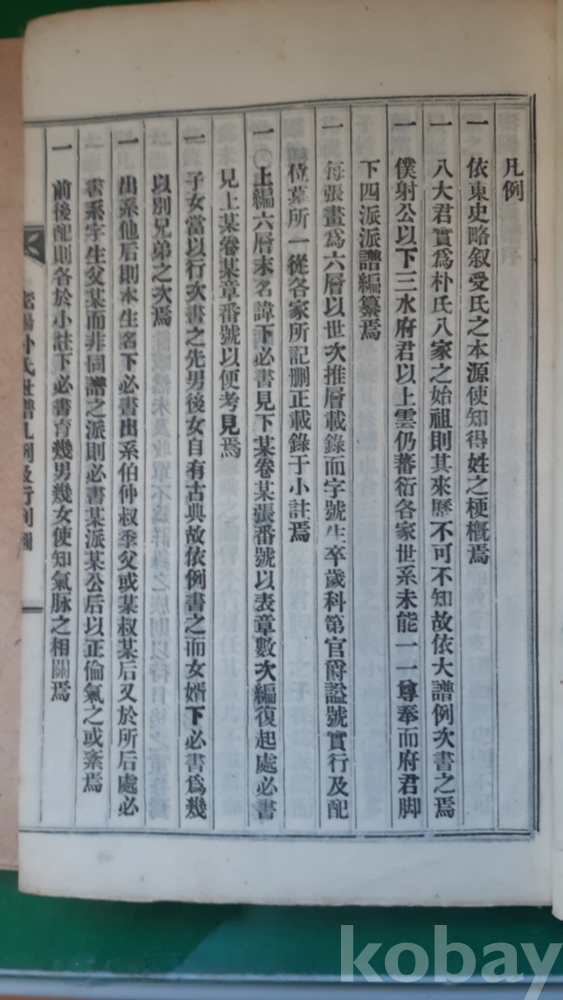 凡例
一 依東史略叙受氏之本源使知得姓之梗槪焉
一 八大君實爲朴氏八家之始祖則其來歷不可不知故依大譜例次書之焉
一 僕射公以下三水府君以上雲仍蕃衍各家世系未能一一尊奉而府君脚
下四派派譜編纂焉
一 每張畫爲六層以世次推層載錄而字號生卒歲科第官爵諡號實行及配
位墓所一從各家所記删正載錄于小註焉
一 〇上編六層末名諱下必書見下某卷某張番號以表章數次編復起處必書
見上某卷某章番號以便考見焉
一 子女當以行次書之先男後女自有古典故依例書之而女婿下必書爲幾
以別兄弟之次焉
一 出系他后則本生名下必書出系伯仲叔季父或某叔某后又於所后處必
書系字生父某而非同譜之派則必書某派某公后以正倫氣之或紊焉
一 前後配則各於小註下必書育幾男幾女使知氣脉之相關焉
密陽朴氏世譜凡例及行列圖
kobay